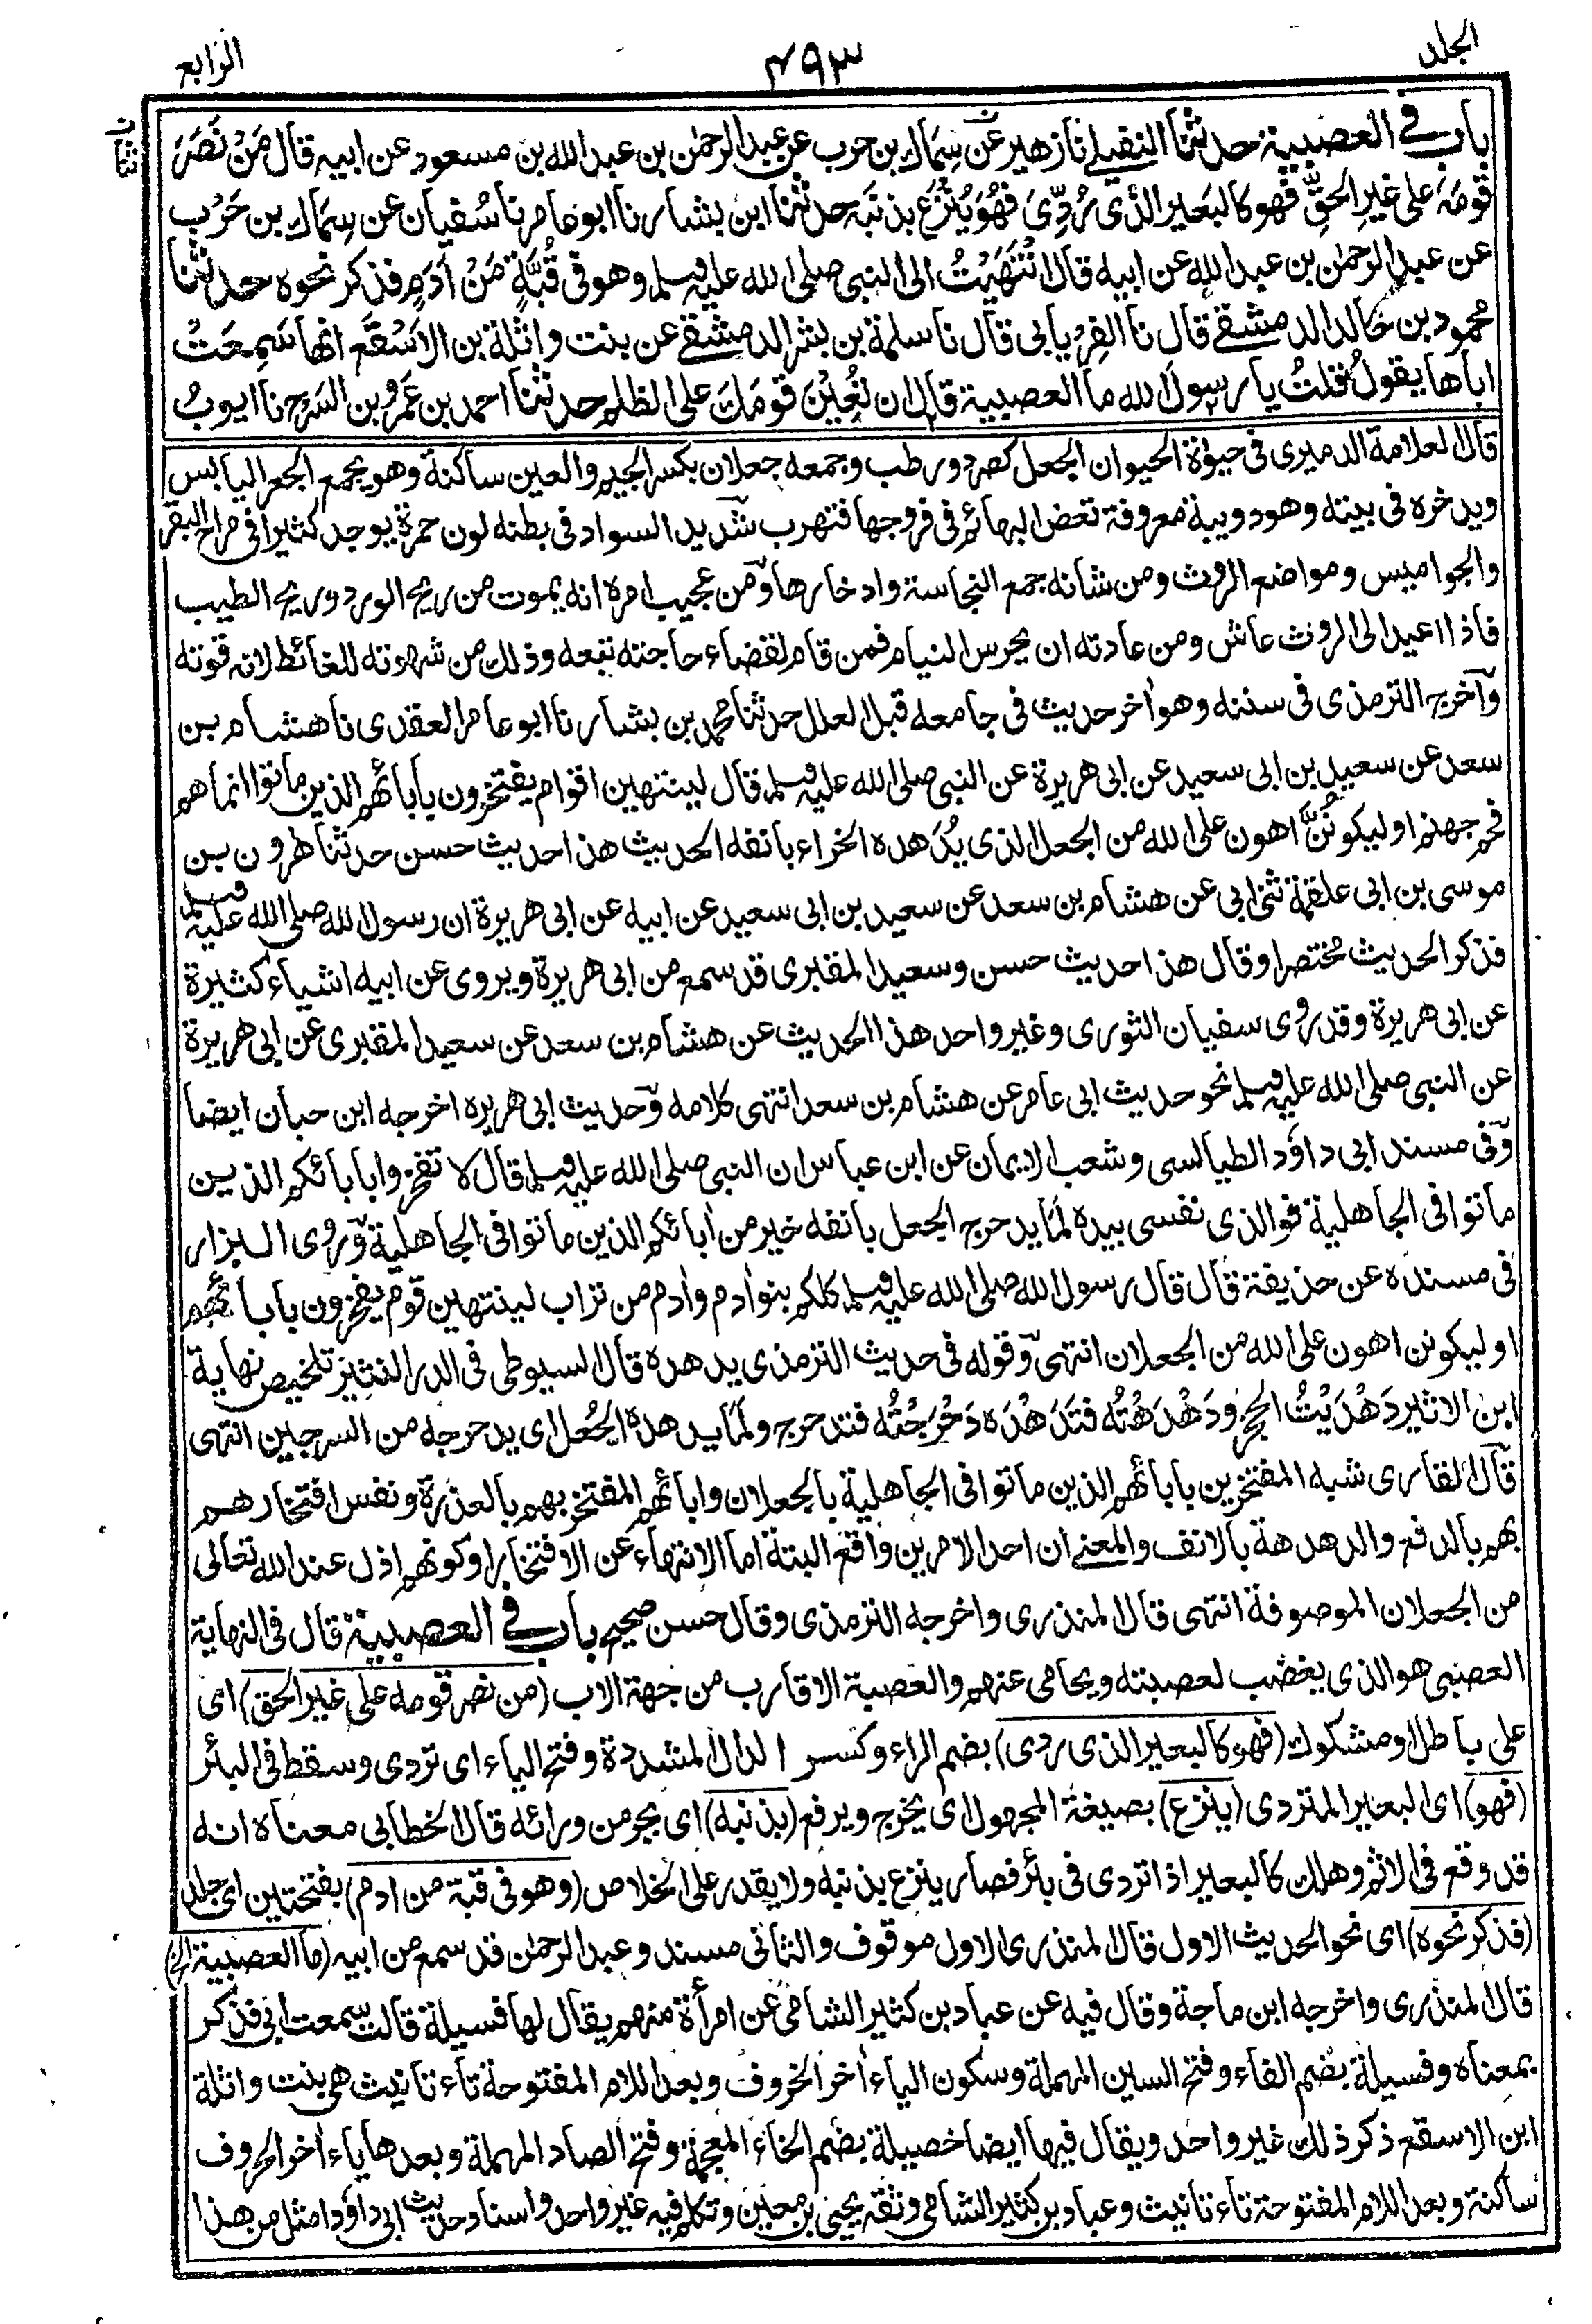 الجلد
٤٩٣
الرابع
باب في العصبية حدثنا النفيلي نا زهير عن سماك بن حرب عن عبد الرحمٰن بن عبد الله بن مسعود عن ابيه قال مَنْ نَصَرَ
قومَه على غيرِ الحقِّ فهو كالبَعيرِ الذي رُدِّىَ فهُوَ يُنْزَعُ بذنَبِه حدثنا ابن بشار نا ابو عامر نا سُفيان عن سِمَاك بن حَرْب
عن عبد الرحمٰن بن عبد الله عن ابيه قال انْتَهَيْتُ الى النبي صلى الله عليه وسلم وهو في قُبَّةٍ مَنْ اَدَمٍ فذكر نحوه حدثنا
محمود بن خالد الدمشقي قال نا الفِرْيابي قال نا سلمة بن بشر الدمشقي عن بنت واثلة بن الاَسْقَع انها سَمِعَتْ
اباها يقول قلتُ يا رسولَ الله ما العصبية قال ان تُعِيْنَ قومَكَ على الظلم حدثنا احمد بن عَمْرو بن السَرْح نا ايوبُ
قال العلامة الدميرى في حيوٰة الحيوان الجعل كصرد ورطب وجمعه جعلان بكسر الجيم والعين ساكنة وهو يجمع الجعر اليابس
ويدخره في بيته وهو دويبة معروفة تعض البهائم في فروجها فتهرب شديد السواد في بطنه لون حمرة يوجد كثيرا في مراح البقر
والجواميس ومواضع الروث ومن شانه جمع النجاسة وادخارها ومن عجيب امره انه يموت من ريح الورد وريح الطيب
فاذا اعيد الى الروث عاش ومن عادته ان يحرس النيام فمن قام لقضاء حاجته تبعه وذلك من شهوته للغائط لانه قوته
واخرج الترمذى في سننه وهو اٰخر حديث في جامعه قبل العلل حدثنا محمد بن بشار نا ابو عامر العقدى نا هشام بن
سعد عن سعيد بن ابى سعيد عن ابى هريرة عن النبي صلى الله عليه وسلم قال لينتهين اقوام يفتخرون بابائهم الذين ماتوا انما هم
فحم جهنم او ليكونُنَّ اهون على الله من الجعل الذي يُدَهده الخراء بانفه الحديث هذا حديث حسن حدثنا هٰرون بن
موسى بن ابى علقمة ثنى ابى عن هشام بن سعد عن سعيد بن ابى سعيد عن ابيه عن ابى هريرة ان رسول الله صلى الله عليه وسلم
فذكر الحديث مختصرا وقال هذا حديث حسن وسعيد المقبرى قد سمع من ابى هريرة ويروى عن ابيه اشياء كثيرة
عن ابى هريرة وقد روٰى سفيان الثورى وغير واحد هذا الحديث عن هشام بن سعد عن سعيد المقبرى عن ابى هريرة
عن النبي صلى الله عليه وسلم نحو حديث ابى عامر عن هشام بن سعد انتهى كلامه وحديث ابى هريره اخرجه ابن حبان ايضا
وفى مسند ابى داؤد الطيالسى وشعب الايمان عن ابن عباس ان النبي صلى الله عليه وسلم قال لا تفخروا بابائكم الذين
ماتوا في الجاهلية فوالذى نفسى بيده لما يدحرج الجعل بانفه خير من اٰبائكم الذين ماتوا في الجاهلية وروى البزار
في مسنده عن حذيفة قال قال رسول الله صلى الله عليه وسلم كلكم بنو اٰدم واٰدم من تراب لينتهين قوم يفخرون باٰبائهم
او ليكونن اهون على الله من الجعلان انتهى وقوله في حديث الترمذى يدهده قال السيوطى في الدر النثير تلخيص نهاية
ابن الاثير دَهْدَيْتُ الحجر ودَهْدَهْتُه فتَدَهْدَه دَحْرَجْتُه فتدحرج ولما يدهده الجُعل اى يدحرجه من السرجين انتهى
قال القارى شبه المفتخرين بابائهم الذين ماتوا في الجاهلية بالجعلان واباءهم المفتخر بهم بالعذرة ونفس افتخارهم
بهم بالدفع والدهدهة بالانف والمعنى ان احد الامرين واقع البتة اما الانتهاء عن الافتخار او كونهم اذل عند الله تعالى
من الجعلان الموصوفة انتهى قال المنذرى واخرجه الترمذى وقال حسن صحيح باب في العصبية قال في النهاية
العصبى هو الذي يغضب لعصبته ويحامى عنهم والعصبة الاقارب من جهة الاب (من نصر قومه على غير الحق) اى
على باطل او مشكوك (فهو كالبعير الذى ردى) بضم الراء وكسر الدال المشددة وفتح الياء اى تردى وسقط في البئر
(فهو) اى البعير المتردى (ينزع) بصيغة المجهول اى يخرج ويرفع (بذنبه) اى يجر من ورائه قال الخطابى معناه انه
قد وقع في الاثم وهلك كالبعير اذا تردى في بئر فصار ينزع بذنبه ولا يقدر على الخلاص (وهو في قبة من ادم) بفتحتين اى جلد
(فذكر نحوه) اى نحو الحديث الاول قال المنذرى الاول موقوف والثانى مسند وعبد الرحمٰن قد سمع من ابيه (ما العصبية الخ)
قال المنذرى واخرجه ابن ماجة وقال فيه عن عباد بن كثير الشامى عن امرأة منهم يقال لها فسيلة قالت سمعت ابى فذكر
بمعناه وفسيلة بضم الفاء وفتح السين المهملة وسكون الياء اٰخر الحروف وبعد اللام المفتوحة تاء تانيث هى بنت واثلة
ابن الاسقع ذكر ذلك غير واحد ويقال فيها ايضا خصيلة بضم الخاء المعجمة وفتح الصاد المهملة وبعدها ياء اٰخر الحروف
ساكنة وبعد اللام المفتوحة تاء تانيث وعباد بن كثير الشامى وثقه يحيى بن معين وتكلم فيه غير واحد واسناد حديث ابى داؤد امثل من هذا